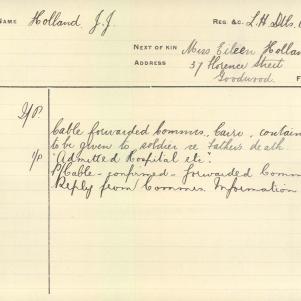 NAME Holland J.J. REG &C. L.H. Dbs.
NEXT OF KIN Miss Eileen Hollan
ADDRESS 37 Florence Street
Goodwood F
Cable forwarded Commrs, Cairo, contain
to be given to soldier re Father's death
"Admitted Hospital etc".
P/Cable - confirmed - forwarded Comm
Reply from Commrs. Information